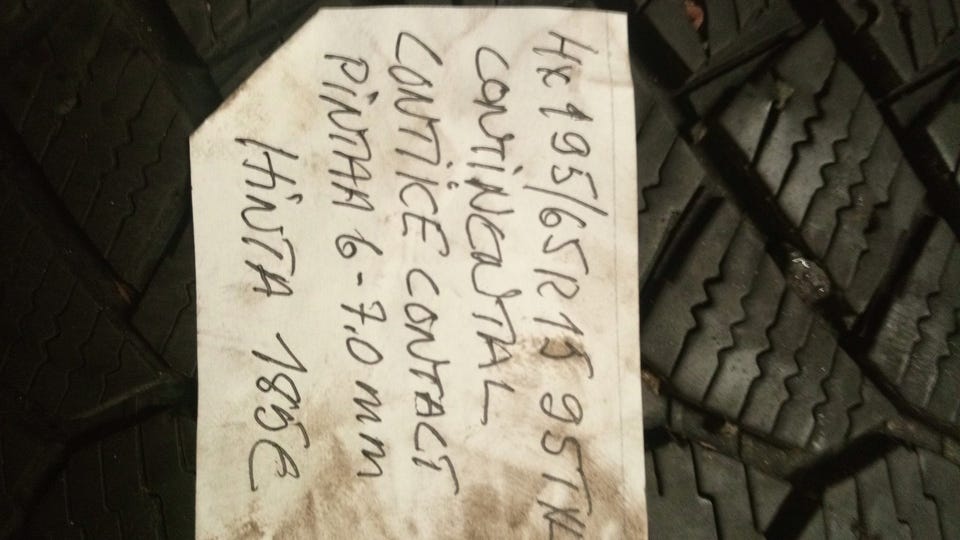 4x195/65R15 95TXL
CONTINENTAL
CONTiCECONTACT
PiNTAA 6-7.0mm
HiNTA 185€